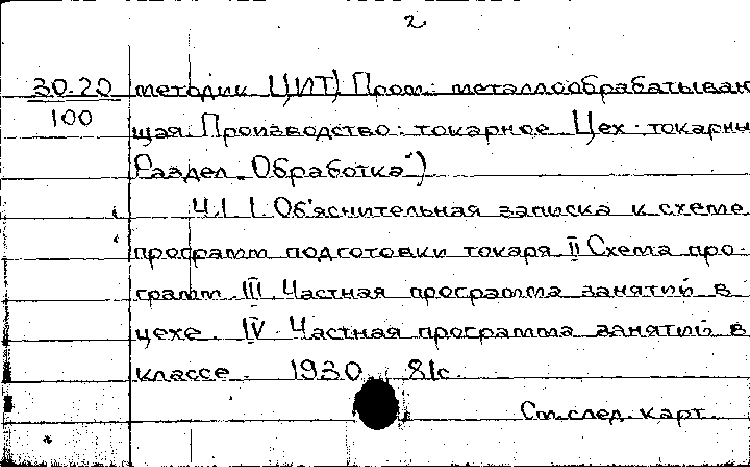 2
30.20 методик ЦИТ) Пром: металлообрабатываю
100
щая. Производство: токарное Цех: токарны
Раздел „Обработка")
Ч.I. I. Об'яснительная записка к схеме
программ подготовки токаря. II Схема про-
грамм. III. Частная программа занятий в
цехе. IV. Частная программа занятий в
классе. 1930 81с.
См. след. карт.